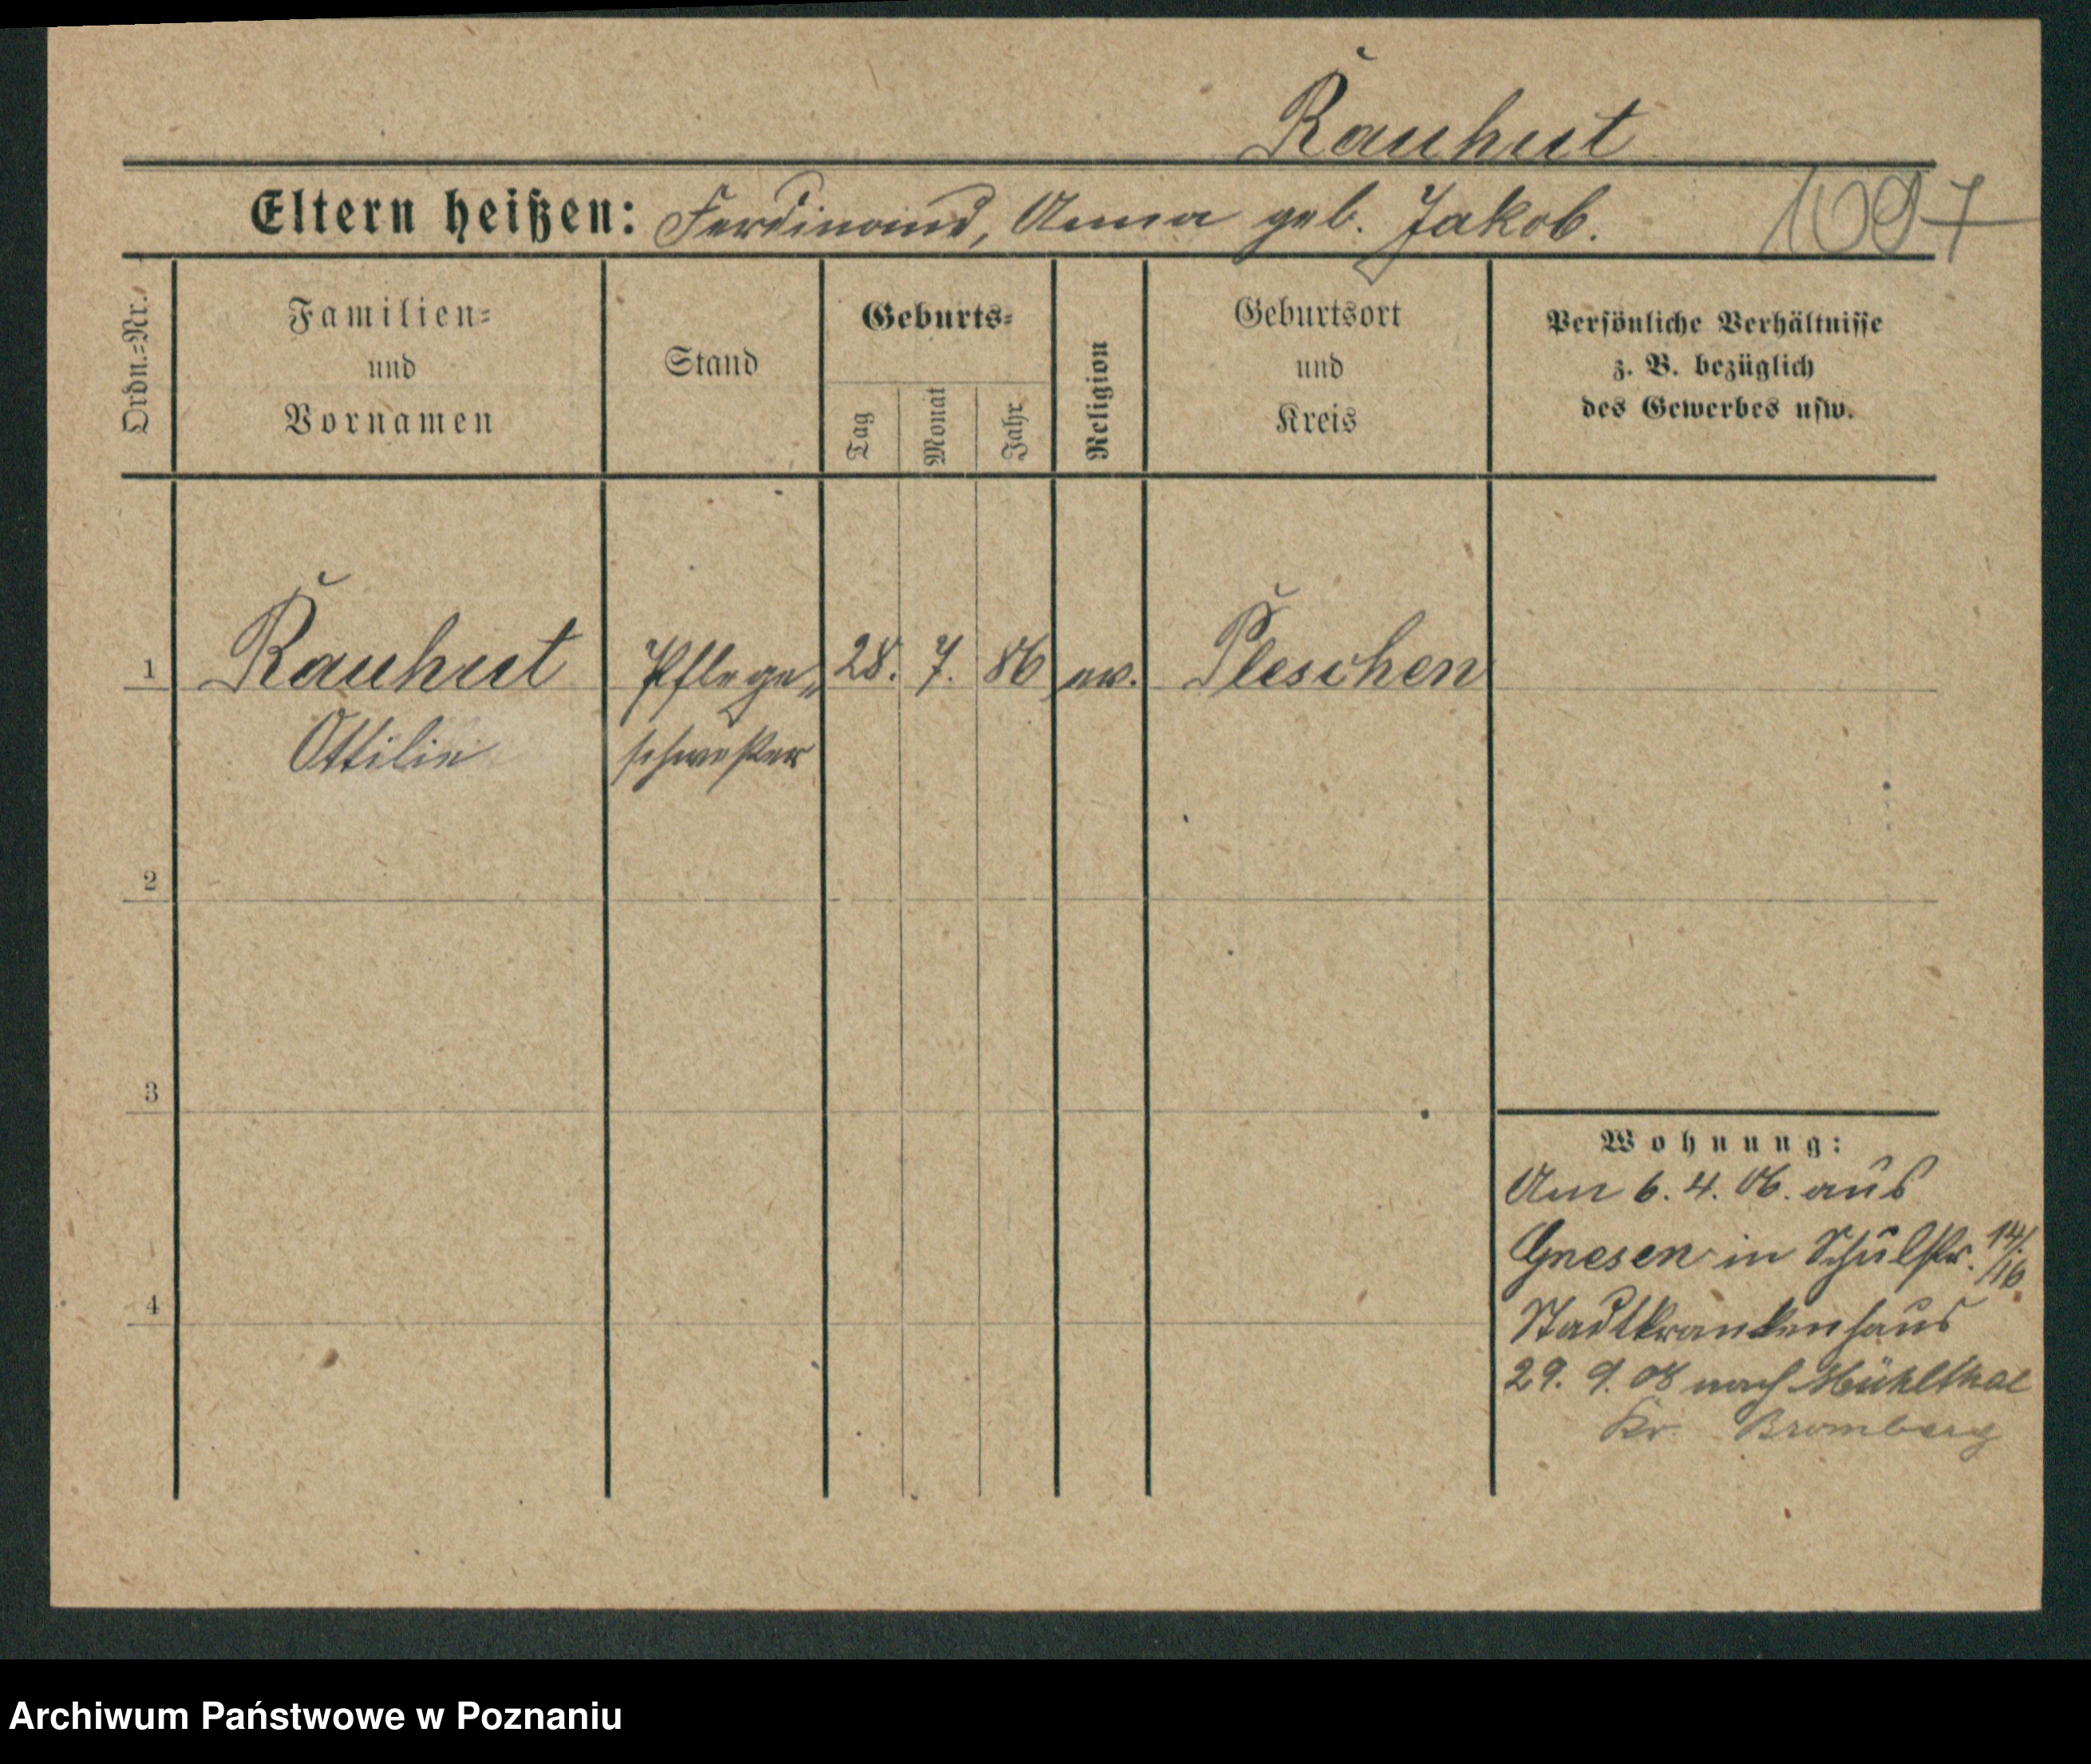 Rauhut
Eltern heißen: Ferdinand, Anna geb. Jakob. 1097
Ordn.=Nr.
Familien=
und
Vornamen
Stand
Geburts=
Tag
Monat
Jahr
Religion
Geburtsort
und
Kreis
Persönliche Verhältnisse
z. B. bezüglich
des Gewerbes usw.
1 Rauhut Pflege„ 28. 7. 86 ev. Pleschen
Ottilie schwester
2
3
4
Wohnung:
Am 6. 4. 06. aus
Gnesen in Schulstr. 14/16
Stadtkrankenhaus
29. 9. 08 nach Mühlthal
Kr. Bromberg
Archiwum Państwowe w Poznaniu